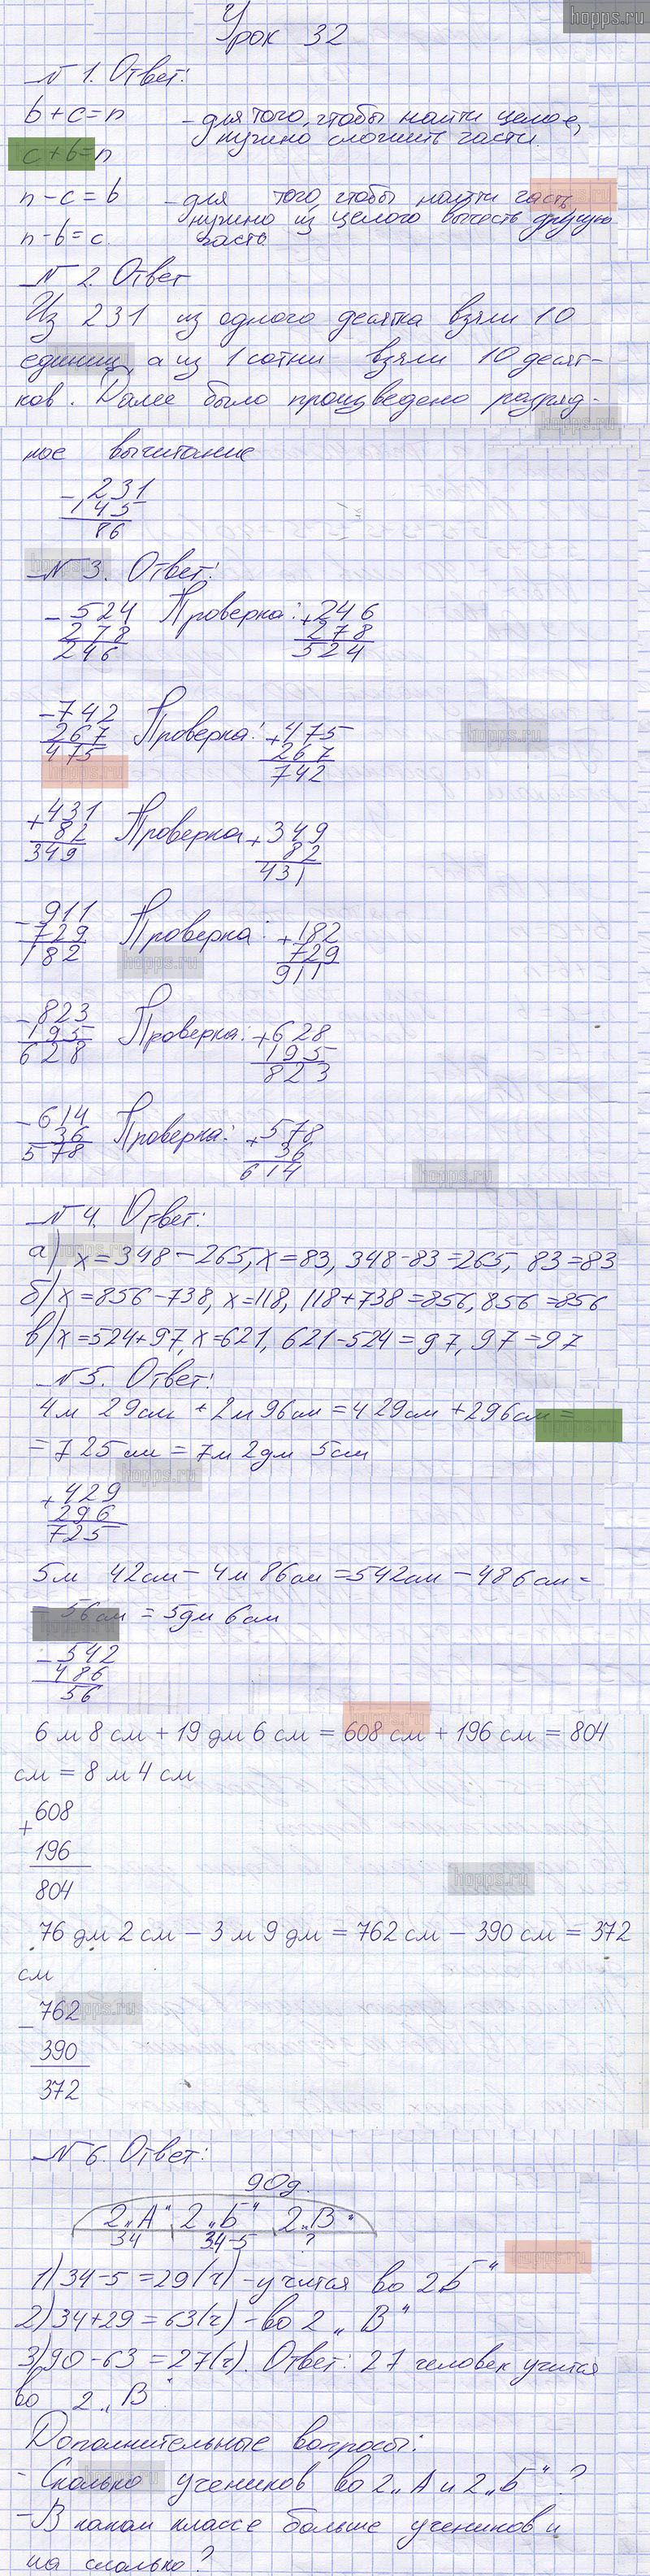 hopps.ru
Урок 32
№ 1. Ответ:
b+c=n - для того, чтобы найти целое,
нужно сложить части.
c+b=n
n-c=b - для того, чтобы найти часть,
нужно из целого вычесть другую
n-b=c. часть
№ 2. Ответ
Из 231 из одного десятка взяли 10
единиц, а из 1 сотни взяли 10 десят-
ков. Далее было произведено разряд-
ное вычитание
- 231
145
86
№ 3. Ответ:
- 524 Проверка: + 246
278 278
246 524
- 742 Проверка: + 475
267 267
475 742
+ 431 Проверка + 349
82 82
349 431
- 911 Проверка: + 182
729 729
182 911
hopps.ru
- 823 Проверка: + 628
195 195
628 823
- 614 Проверка: + 578
36 36
578 614
№ 4. Ответ:
а) x=348-265, x=83, 348-83=265, 83=83
б) x=856-738, x=118, 118+738=856, 856=856
в) x=524+97, x=621, 621-524=97, 97=97
№ 5. Ответ:
4м 29см + 2м 96см = 429см + 296см =
= 725см = 7м 2дм 5см
hopps.ru
+ 429
296
725
5м 42см - 4м 86см = 542см - 486см =
= 56см = 5дм 6см
- 542
486
56
6 м 8 см + 19 дм 6 см = 608 см + 196 см = 804
см = 8 м 4 см
608
+
196
804
hopps.ru
76 дм 2 см - 3 м 9 дм = 762 см - 390 см = 372
см
762
-
390
372
hopps.ru
№ 6. Ответ:
90д.
2„А" 2„Б" 2„В"
34 34-5 ?
1) 34-5=29(ч) - учится во 2Б"
2) 34+29=63(ч) - во 2 „В"
3) 90-63=27(ч). Ответ: 27 человек учится
во 2„В".
Дополнительные вопросы:
- Сколько учеников во 2„А и 2„Б"?
- В каком классе больше учеников и
на сколько?